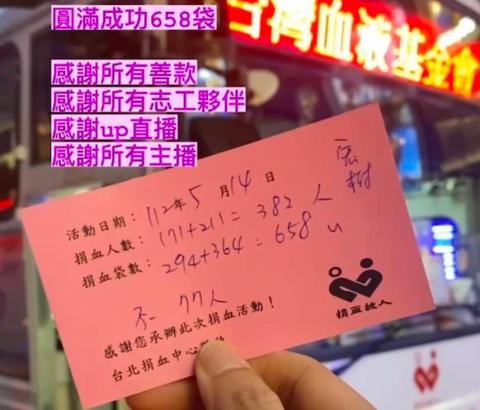 圓滿成功658袋
感謝所有善款
感謝所有志工夥伴
感謝up直播
感謝所有主播
台灣血液基金會
活動日期：112年5月14日
捐血人數：171+211=382人
捐血袋數：294+364=658u
不一 77人
感謝您承辦此次捐血活動！
台北捐血中心
捐血救人